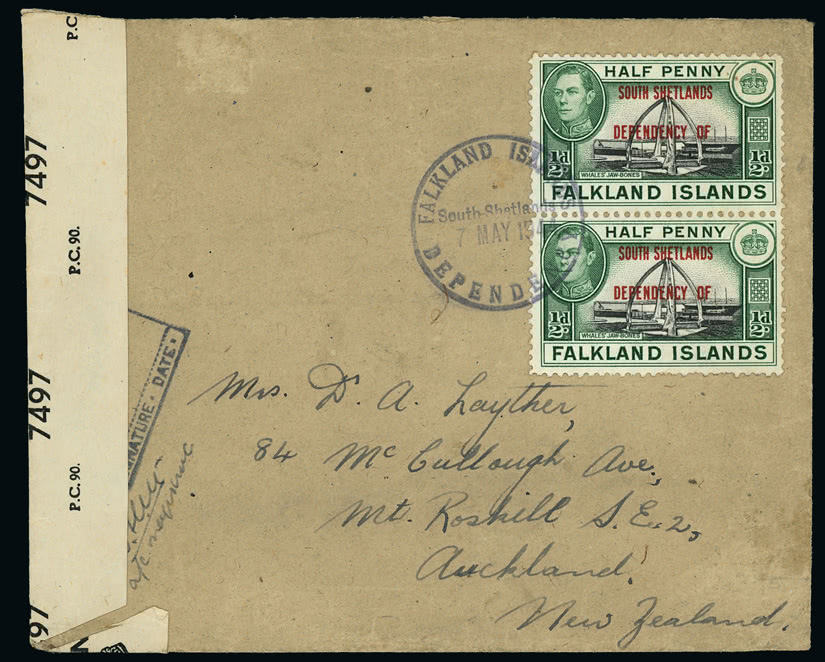 P.C.
7497
P.C. 90.
7497
P.C. 90.
97
HALF PENNY
SOUTH SHETLANDS
DEPENDENCY OF
½d
½d
WHALES' JAW-BONES
FALKLAND ISLANDS
HALF PENNY
SOUTH SHETLANDS
DEPENDENCY OF
½d
½d
WHALES' JAW-BONES
FALKLAND ISLANDS
FALKLAND IS
South Shetlands
7 MAY 194
DEPENDE
NATURE • DATE •
Mrs. D. A. Layther,
84 McCullough Ave,
Mt. Roskill S.E.2,
Auckland.
New Zealand.